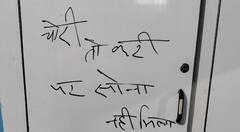 चोरी
तो करी
पर सोना
नहीं मिला